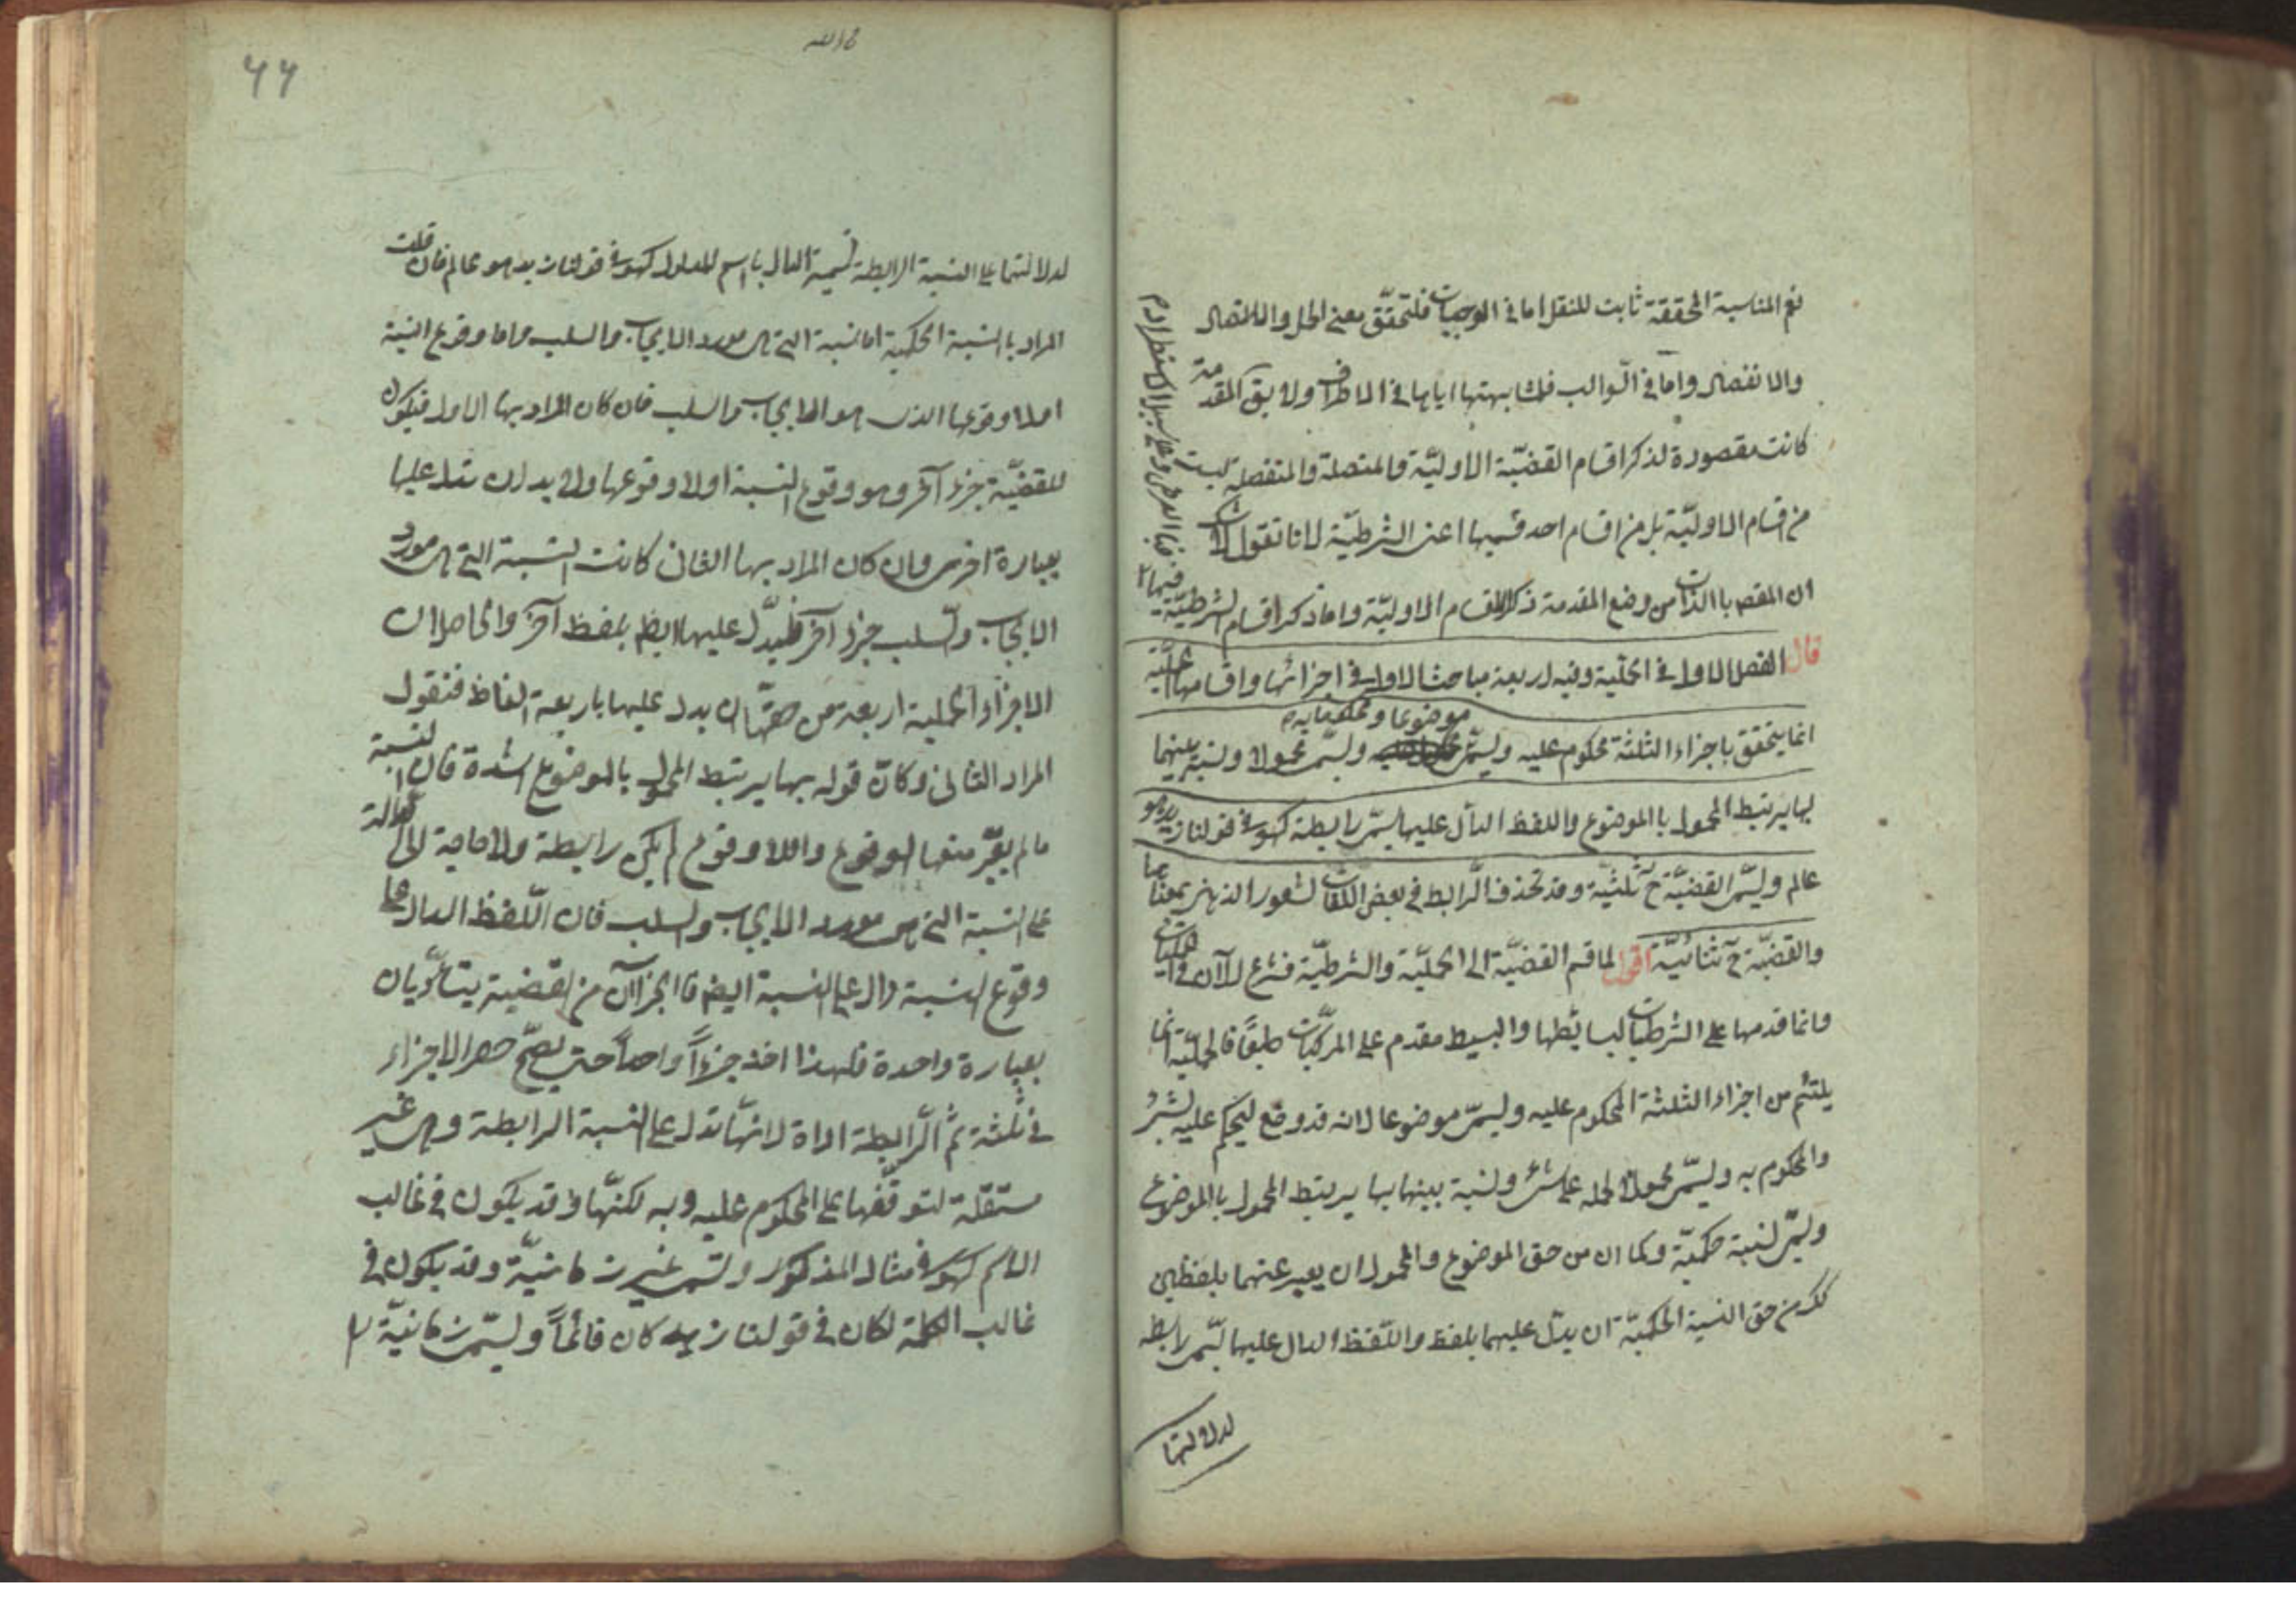 نعم المناسبة المحققة ثابت للنقل اما فى الموجبات فلتحقق معنى الحمل والاتصال
والانفصال واما فى السوالب فلمشابهتها اياها فى الاطراف ولا يبق المقدمة
كانت مقصودة لذكر اقسام القضيّة الاوليّة والمتصلة والمنفصلة ليست
من اقسام الاوليّة بل من اقسام احد قسميها اعنى الشرطيّة لانا نقول لا شك
ان المقصم باالذات من وضع المقدمة ذكر اقسام الاوليّة واما ذكر اقسام الشرطيّة فيها
فبا العرض وعلى سبيل الاستطراد م
قال الفصل الاول فى الحملية وفيه اربعة مباحث الاول فى اجزائها واقسامها الحمليّة
انما يتحقق باجزاء الثلثة محكوم عليه ويسمّى موضوعا ومحكوما به ويسمّى محمولا ونسبة بينهما
بها يرتبط المحمول باالموضوع واللفظ الدال عليها يسمّى رابطة كهو فى قولنا زيد هو
عالم ويسمّى القضيّة ح ثلثيّة وقد تحذف الرّابط فى بعض اللّغات لشعور الذهن بمعناها
والقضيّة ح ثنائيّة اقول لما قسم القضيّة الى الحمليّة والشرطيّة فشرع الآن فى الحمليات
وانما قدمها على الشرطيات لبسائطها والبسيط مقدم على المركّبات طبعًا فالحمليّة انما
يلتئم من اجزاء الثلثة المحكوم عليه ويسمّى موضوعا لانه قد وضع ليحكم عليه بشئ
والمحكوم به ويسمّى محمولا لحمله على شئ ونسبة بينهما بها يرتبط المحمول باالموضوع
ويسمّى نسبة حكميّة وكما ان من حق الموضوع والمحمول ان يعبر عنهما بلفظين
كك من حق النسبة الحكميّة ان يدلّ عليها بلفظ واللّفظ الدال عليها يسمّى رابطه
لدلالتها
۶۶
لدلالتها على النسبة الرابطة تسمية الدال باسم المدلول كهو فى قولنا زيد هو عالم فان قلت
المراد باالنسبة الحكمية اما نسبة التى هى مورد الايجاب والسلب واما وقوع النسبة
او لا وقوعها الذى هو الايجاب والسلب فان كان المراد بها الاول فيكون
للقضيّة جزء آخر وهو وقوع النسبة او لا وقوعها ولا بد ان يدل عليها
بعبارة اخرى وان كان المراد بها الثانى كانت النسبة التى هى مورد
الايجاب والسلب جزء آخر فليدلّ عليها ايضا بلفظ آخر والحاصل ان
الاجزاء الحملية اربعة فمن حقّها ان يدل عليها باربعة الفاظ فنقول
المراد الثانى وكانّ قوله بها يرتبط المحمول بالموضوع اشارة فان النسبة
ما لم يعتبر معها الوقوع واللا وقوع لم يكن رابطة ولا حاجة الى الدلالة
على النسبة التى هى مورد الايجاب والسلب فان اللّفظ الدال على
وقوع النسبة دال على النسبة ايضا فالجزآن من القضية يتأدّيان
بعبارة واحدة فلهذا اخذ جزءاً واحداً حتى يصحّ حصر الاجزاء
فى ثلثة ثم الرّابطة اداة لانّها تدل على النسبة الرابطة وهى غير
مستقلّة لتوقّفها على المحكوم عليه وبه لكنّها قد يكون فى غالب
الاسم كهو فى مثال المذكور وتسمى غير زمانيّة وقد يكون فى
غالب الكلمة لكان فى قولنا زيد كان قائماً ويسمّى زمانيّة